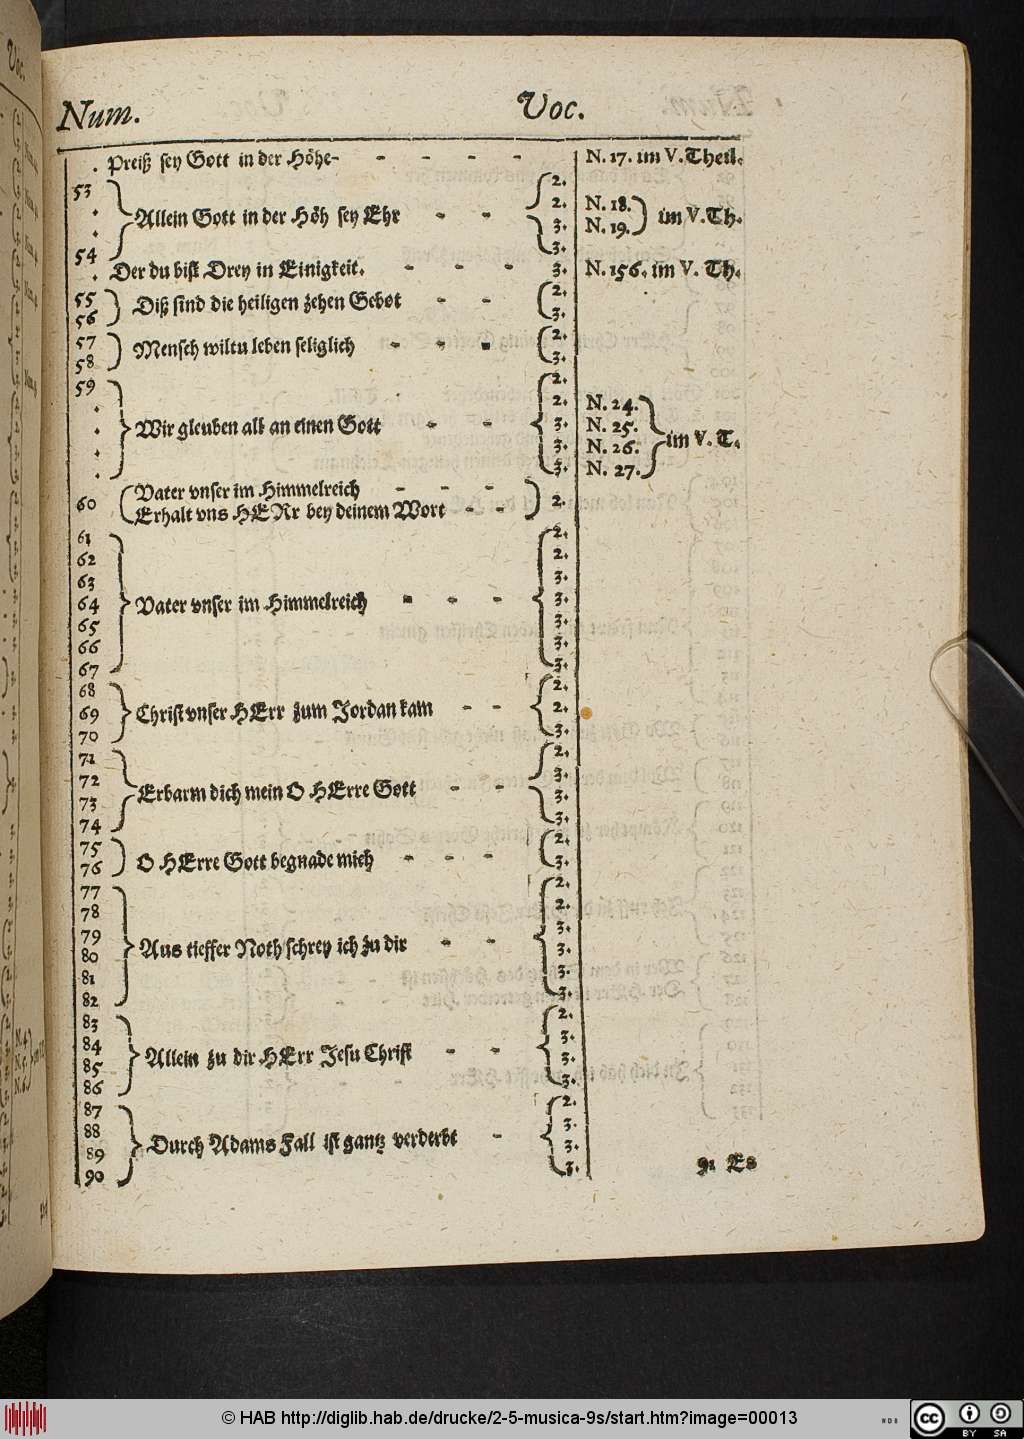 Num. Voc.
. Preiß sey Gott in der Höhe - - - - N. 17. im V. Theil.
53 2.
. Allein Gott in der Höh sey Ehr - - 2. N. 18. im V. Th.
. 3. N. 19.
54 3.
. Der du bist Drey in Einigkeit. - - - 3. N. 156. im V. Th.
55 Diß sind die heiligen zehen Gebot - - 2.
56 3.
57 Mensch wiltu leben seliglich - - - 2.
58 3.
59 2.
. 2. N. 24.
. Wir gleuben all an einen Gott - - 3. N. 25. im V. T.
. 3. N. 26.
. 3. N. 27.
60 Vater vnser im Himmelreich - - - 2.
Erhalt vns HERr bey deinem Wort - -
61 2.
62 2.
63 3.
64 Vater vnser im Himmelreich - - - 3.
65 3.
66 3.
67 3.
68 2.
69 Christ vnser HErr zum Jordan kam - - 2.
70 3.
71 2.
72 Erbarm dich mein O HErre Gott - - 3.
73 3.
74 3.
75 O HErre Gott begnade mich - - - 2.
76 3.
77 2.
78 2.
79 Aus tieffer Noth schrey ich zu dir - - 3.
80 3.
81 3.
82 3.
83 2.
84 Allein zu dir HErr Jesu Christ - - 3.
85 3.
86 3.
87 2.
88 Durch Adams Fall ist gantz verderbt - 3.
89 3.
90 3.
91 Es
© HAB http://diglib.hab.de/drucke/2-5-musica-9s/start.htm?image=00013
cc BY SA